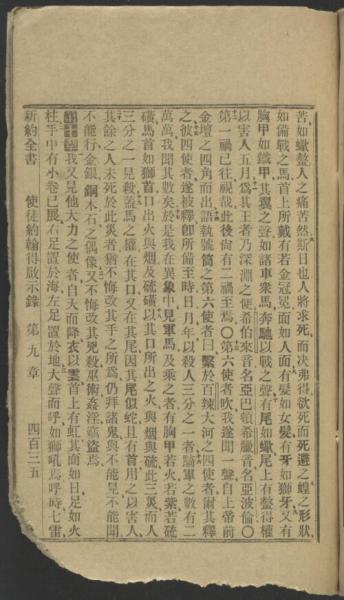 苦如蠍螫人之痛苦然斯日也人將求死而决弗得欲死而死遯之蝗之形狀
如備戰之馬首上所戴有若金冠冕面如人面有髮如女髮有牙如獅牙又有
胸甲如鐵甲其翼之聲如諸車衆馬奔馳以戰之聲有尾如蠍尾上有螫得權
以害人五月爲其王者乃深淵之使希伯來音名亞巴頓希臘音名亞波倫〇
第一禍已往視哉此後尙有二禍至焉〇第六使者吹我遂聞一聲自上帝前
金壇之四角而出語執號筒之第六使者曰繫於百辣大河之四使者爾其釋
之彼四使者遂被釋卽所備至時日月年以殺人三分之一者騎軍之數有二
萬萬我聞其數矣於是我在異象中見軍馬及乘之者有胸甲若火若紫若硫
磺馬首如獅首口出火與烟及硫磺以其口所出之火與烟與硫此三災而人
三分之一見殺蓋馬之權在其口又在其尾因其尾似蛇且有首用之以害人
其餘之人未死於此災者猶不悔改其手之所爲仍拜諸鬼與不能見不能聞
不能行金銀銅木石之偶像又不悔改其兇殺巫術姦淫竊盜焉
我又見他大力之使者自天而降衣以雲首上有虹其面如日足如火
柱手中有小卷已展右足置於海左足置於地大聲而呼如獅吼焉呼時七雷
新約全書 使徒約翰得啟示錄 第九章 四百三五